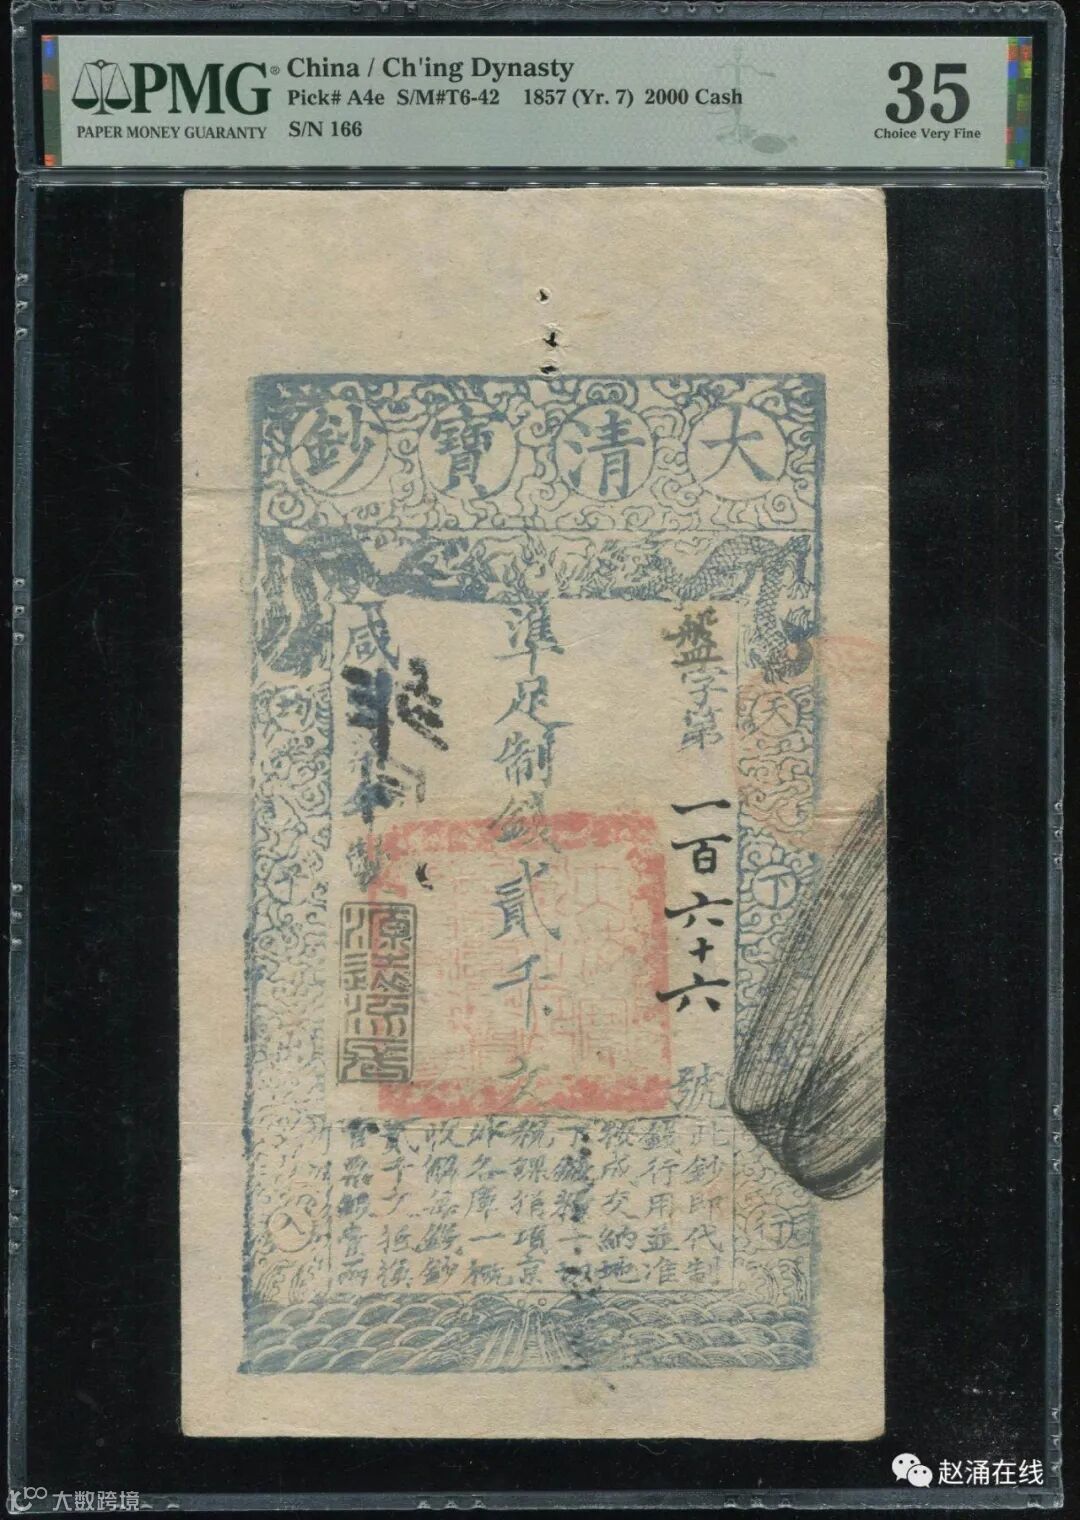 PMG
PAPER MONEY GUARANTY
China / Ch'ing Dynasty
Pick# A4e S/M#T6-42 1857 (Yr. 7) 2000 Cash
S/N 166
35
Choice Very Fine
大清寶鈔
天下
行
均平
盤字第一百六十六號
準足制錢貳千文
咸
年製
此鈔即代制
錢行用並准
按成交納地
丁錢糧一切
稅課捐項京
外各庫一概
收解每錢鈔
貳千文抵換
官票銀壹兩
赵涌在线
大数跨境